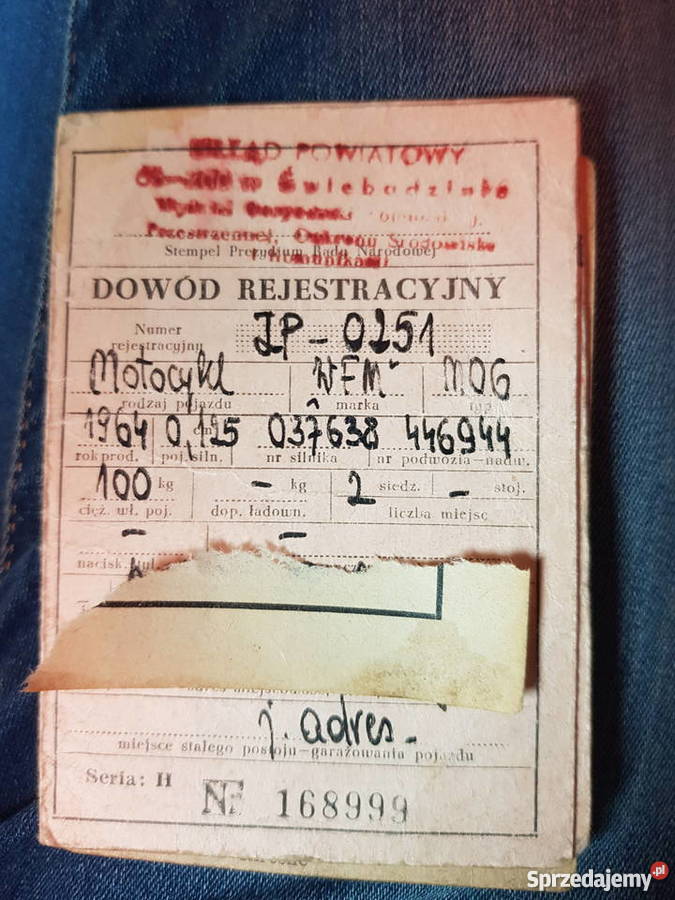 URZĄD POWIATOWY
w Świebodzinie
Przestrzennej, Ochrony Środowiska
i Komunikacji
Stempel Prezydium Rady Narodowej
DOWÓD REJESTRACYJNY
Numer rejestracyjny ZP-0251
Motocykl WFM M06
rodzaj pojazdu marka typ
1964 0,125 037638 446944
rok prod. poj. siln. nr silnika nr podwozia-nadw.
100 kg - kg 2 siedz. - stoj.
cięż. wł. poj. dop. ładown. liczba miejsc
- -
nacisk.
j. adres.
miejsce stałego postoju-garażowania pojazdu
Seria: H Nr 168999
Sprzedajemy.pl